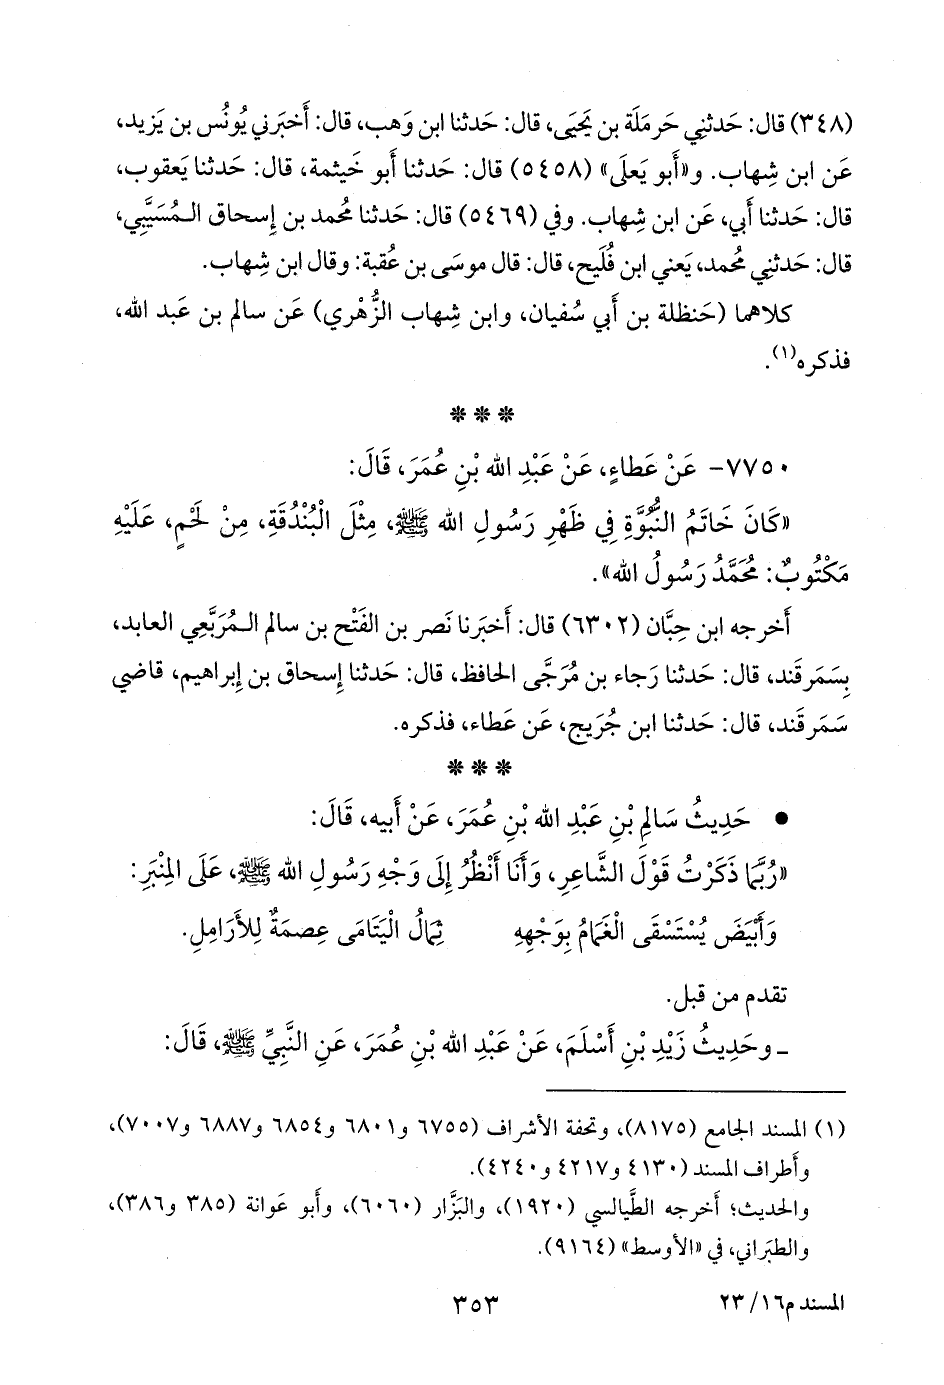 (٣٤٨) قال: حَدثنِي حَرمَلَة بن يَحيَى، قال: حَدثنا ابن وَهب، قال: أَخبَرني يُونُس بن يَزيد،
عَن ابن شِهاب. و«أَبو يَعلَى» (٥٤٥٨) قال: حَدثنا أَبو خَيثمة، قال: حَدثنا يَعقوب،
قال: حَدثنا أَبي، عَن ابن شِهاب. وفي (٥٤٦٩) قال: حَدثنا مُحمد بن إِسحاق المُسَيَّبي،
قال: حَدثنِي مُحمد، يَعني ابن فُلَيح، قال: قال موسَى بن عُقبة: وقال ابن شِهاب.
كلاهما (حَنظلة بن أَبي سُفيان، وابن شِهاب الزُّهْري) عَن سالم بن عَبد الله،
فذكره(١).
***
٧٧٥٠- عَنْ عَطاءٍ، عَنْ عَبْدِ الله بْنِ عُمَرَ، قَالَ:
«كَانَ خَاتَمُ النُّبُوَّةِ فِي ظَهْرِ رَسُولِ الله ﷺ، مِثْلَ الْبُنْدُقَةِ، مِنْ لَحْمٍ، عَلَيْهِ
مَكْتُوبٌ: مُحَمَّدُ رَسُولُ الله».
أَخرجه ابن حِبَّان (٦٣٠٢) قال: أَخبَرنا نَصر بن الفَتْح بن سالم المُرَبَّعي العابد،
بِسَمَرقَند، قال: حَدثنا رَجاء بن مُرَجَّى الحافظ، قال: حَدثنا إِسحاق بن إِبراهيم، قاضي
سَمَرقَند، قال: حَدثنا ابن جُرَيج، عَن عَطاء، فذكره.
***
• حَدِيثُ سَالِمِ بْنِ عَبْدِ الله بْنِ عُمَرَ، عَنْ أَبيه، قَالَ:
«رُبَّمَا ذَكَرْتُ قَوْلَ الشَّاعِرِ، وَأَنَا أَنْظُرُ إِلَى وَجْهِ رَسُولِ الله ﷺ، عَلَى المِنْبَرِ:
وَأَبْيَضَ يُسْتَسْقَى الْغَمَامُ بِوَجْهِهِ ثِمَالُ الْيَتَامَى عِصمَةٌ لِلأَرَامِلِ.
تقدم من قبل.
ـ وحَدِيثُ زَيْدِ بْنِ أَسْلَمَ، عَنْ عَبْدِ الله بْنِ عُمَرَ، عَنِ النَّبِيِّ ﷺ، قَالَ:
(١) المسند الجامع (٨١٧٥)، وتحفة الأشراف (٦٧٥٥ و٦٨٠١ و٦٨٥٤ و٦٨٨٧ و٧٠٠٧)،
وأطراف المسند (٤١٣٠ و٤٢١٧ و٤٢٤٠).
والحديث؛ أَخرجه الطَّيالسي (١٩٢٠)، والبَزَّار (٦٠٦٠)، وأَبو عَوانة (٣٨٥ و٣٨٦)،
والطبَراني، في «الأوسط» (٩١٦٤).
المسند م١٦/ ٢٣ ٣٥٣